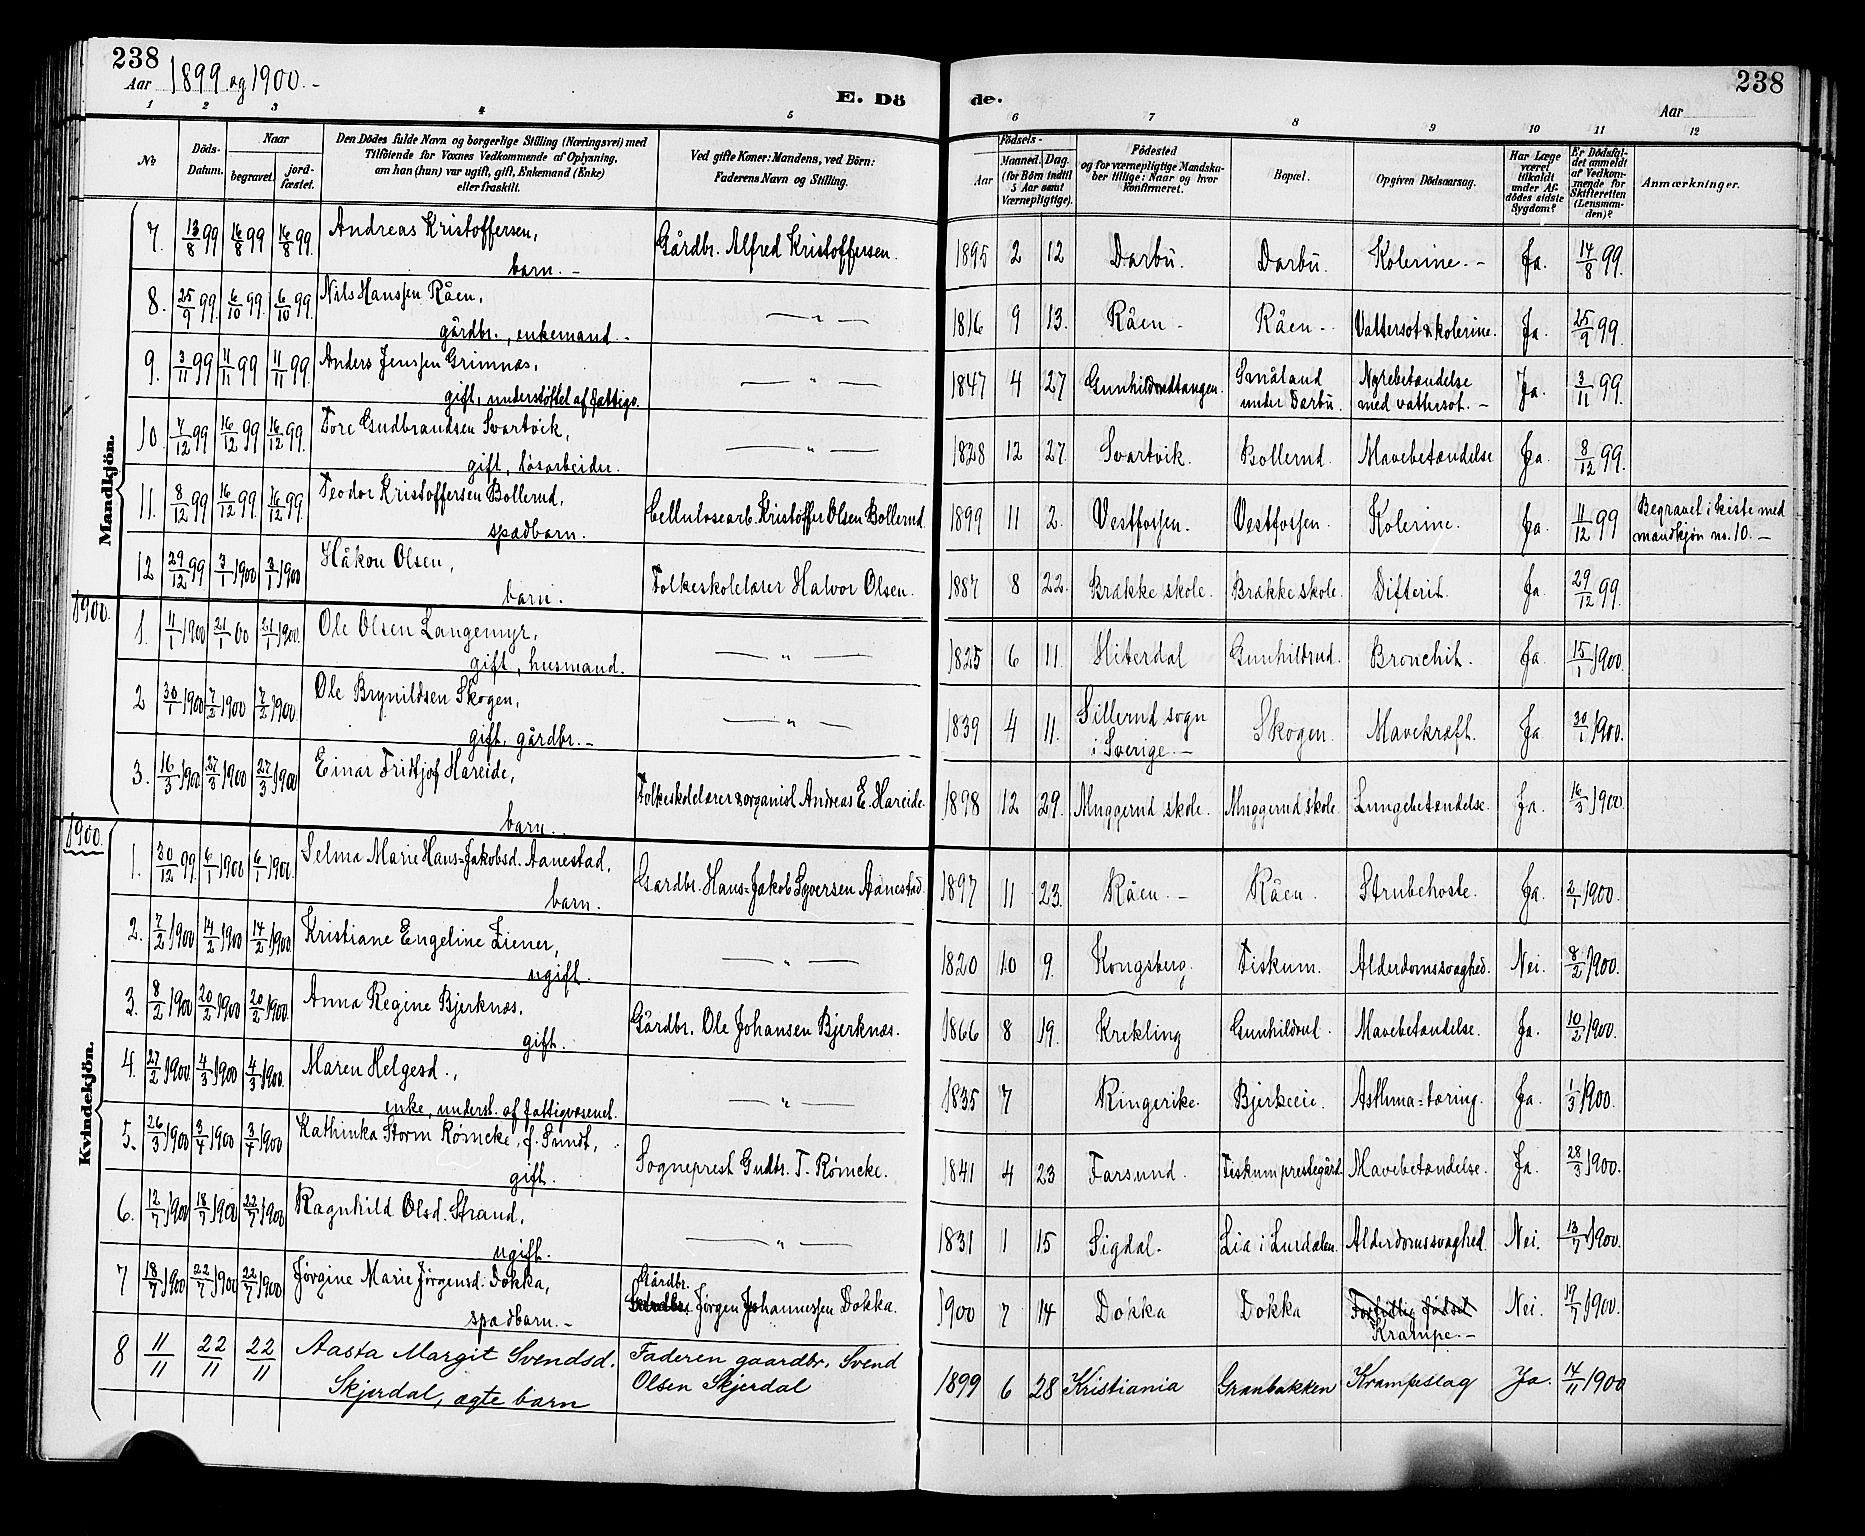 238
Aar 1899 og 1900. -
E. Dö
de.
238
Aar
1 2 3 4 5 6 7 8 9 10 11 12
No
Döds-Datum.
Naar
begravet.
jord-fæstet.
Den Dödes fulde Navn og borgerlige Stilling (Næringsvei) med
Tilföiende for Voxnes Vedkommende af Oplysning,
om han (hun) var ugift, gift, Enkemand (Enke)
eller fraskilt.
Ved gifte Koner: Mandens, ved Börn:
Faderens Navn og Stilling.
Födsels-
Aar
Maaned. Dag.
(for Börn indtil
5 Aar samt
Værnepligtige).
Födested
og for værnepligtige Mandska-
ber tillige: Naar og hvor
Konfirmeret.
Bopæl.
Opgiven Dödsaarsag.
Har Læge
været
tilkaldt
under Af-
dödes sidste
Sygdom?
Er Dödsfal-
det anmeldt
af Vedkom-
mende for
Skifteretten
(Lensman-
den)?
Anmærkninger.
Mandkjön.
7. 13/8 99 16/8 99 16/8 99. Andreas Kristoffersen, barn. - Gårdbr. Alfred Kristoffersen. 1895 2 12 Darbu. Darbu. Kolerine. - Ja. 14/8 99.
8. 25/9 99. 6/10 99. 6/10 99. Nils Hanssen Råen, gårdbr., enkemand. - — " — 1816 9 13. Råen - Råen - Vattersot & kolerine. Ja. 25/9 99.
9. 3/11 99 11/11 99 11/11 99. Anders Jenssen Grimnæs, gift, understöttet af fattigv. — " — 1847 4 27 Gunhildrudtangen. Småland under Darbu. Nyrebetændelse med vattersot. - Ja. 3/11 99.
10. 7/12 99 16/12 99 16/12 99. Tore Gudbrandsen Svartvik, gift, løsarbeider. — " — 1828 12 27. Svartvik. Bollerud. Mavebetændelse Ja. 8/12 99.
11. 8/12 99 16/12 99. 16/12 99. Teodor Kristoffersen Bollerud, spædbarn. Cellulosearb. Kristoffer Olsen Bollerud. 1899 11 2. Vestfossen. Vestfossen. Kolerine. Ja. 11/12 99 Begravet i kiste med mandkjön no. 10. -
12 29/12 99 3/1 1900 3/1 1900 Håkon Olsen, barn. Folkeskolelærer Halvor Olsen. 1887 8 22. Brække skole. Brække skole. Difterit. Ja. 29/12 99.
1900.
1. 11/1 1900 21/1 00 21/1 1900. Ole Olsen Langemyr, gift, husmand. — " — 1825 6 11. Hiterdal Gunhildrud. Bronchit. Ja. 15/1 1900.
2 30/1 1900 7/2 1900 7/2 1900 Ole Brynildsen Skogen, gift, gårdbr. - — " — 1839 4 11. Sillerud sogn i Sverige. - Skogen. Mavekræft. Ja. 30/1 1900.
3. 16/3 1900 27/3 1900 27/3 1900 Einar Fridtjof Hareide, barn. Folkeskolelærer & organist Andreas E. Hareide. 1898 12 29. Muggerud skole. Muggerud skole. Lungebetændelse. Ja. 16/3 1900.
1900.
Kvindekjön.
1. 30/12 99. 6/1 1900 6/1 1900. Selma Marie Hans-Jakobsd. Aanestad, barn. Gårdbr. Hans-Jakob Syversen Aanestad. 1897 11 23. Råen. - Råen. Strubehoste. Ja. 2/1 1900.
2. 7/2 1900 14/2 1900 14/2 1900. Kristiane Engeline Ziener, ugift. — " — 1820 10 9. Kongsberg. Fiskum. Alderdomssvaghed. Nei. 8/2 1900.
3. 8/2 1900 20/2 1900 20/2 1900. Anna Regine Bjerknæs, gift. Gårdbr. Ole Johansen Bjerknæs. 1866 8 19. Krekling Gunhildrud. Mavebetændelse. Ja. 10/2 1900.
4. 27/2 1900. 4/3 1900 4/3 1900. Maren Helgesd., enke, underst. af fattigvæsenet. — " — 1835 7 Ringerike. Bjerkeeie. Asthma-tæring. Ja. 1/3 1900.
5. 26/3 1900 3/4 1900 3/4 1900 Kathinka Storm Rømcke, f. Sundt, gift. Sogneprest Gudbr. T. Rømcke. 1841 4 23 Farsund. Fiskum prestegård. Mavebetændelse. Ja. 28/3 1900.
6. 12/7 1900 18/7 1900 22/7 1900 Ragnhild Olsd. Strand, ugift. — " — 1831 1 15 Sigdal. Lia i Lurdalen. Alderdomssvaghed. Nei. 13/7 1900.
7 18/7 1900 22/7 1900 22/7 1900 Jørgine Marie Jørgensd. Dokka, spædbarn. - Gårdbr. Jørgen Johannessen Dokka. 1900 7 14 Dokka Dokka Fortidlig fødsel Krampe. - Nei. 19/7 1900.
8 11/11 22/11 22/11 Aasta Margit Svendsd. Skjerdal, ægte barn Faderen gaardbr. Svend Olsen Skjerdal 1899 6 28 Kristiania Granbakken Krampeslag Ja. 14/11 1900